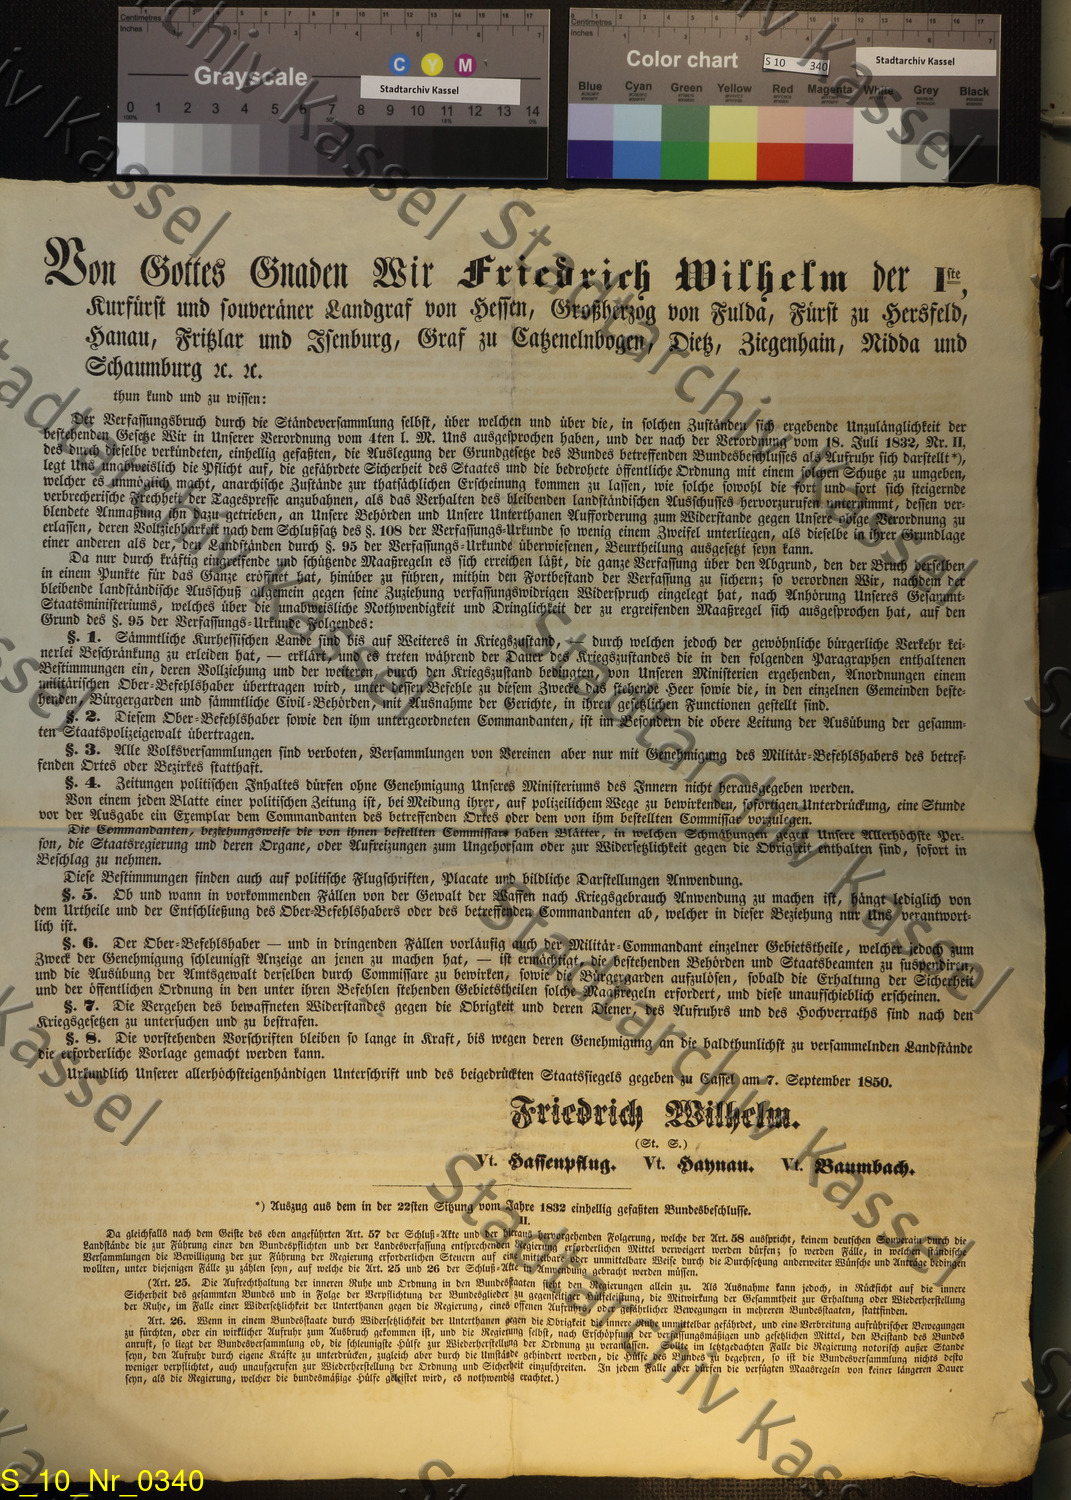 Grayscale
C Y M
Stadtarchiv Kassel
Color chart
S 10 340
Stadtarchiv Kassel
Blue Cyan Green Yellow Red Magenta White Grey Black
0 1 2 3 4 5 6 7 8 9 10 11 12 13 14
Von Gottes Gnaden Wir Friedrich Wilhelm der I^ste,
Kurfürst und souveräner Landgraf von Hessen, Großherzog von Fulda, Fürst zu Hersfeld,
Hanau, Fritzlar und Isenburg, Graf zu Catzenelnbogen, Dietz, Ziegenhain, Nidda und
Schaumburg ꝛc. ꝛc.
thun kund und zu wissen:
Der Verfassungsbruch durch die Ständeversammlung selbst, über welchen und über die, in solchen Zuständen sich ergebende Unzulänglichkeit der
bestehenden Gesetze Wir in Unserer Verordnung vom 4ten l. M. Uns ausgesprochen haben, und der nach der Verordnung vom 18. Juli 1832, Nr. II,
des durch dieselbe verkündeten, einhellig gefaßten, die Auslegung der Grundgesetze des Bundes betreffenden Bundesbeschlusses als Aufruhr sich darstellt *),
legt Uns unabweislich die Pflicht auf, die gefährdete Sicherheit des Staates und die bedrohete öffentliche Ordnung mit einem solchen Schutze zu umgeben,
welcher es unmöglich macht, anarchische Zustände zur thatsächlichen Erscheinung kommen zu lassen, wie solche sowohl die fort und fort sich steigernde
verbrecherische Frechheit der Tagespresse anzubahnen, als das Verhalten des bleibenden landständischen Ausschusses hervorzurufen unternimmt, dessen ver-
blendete Anmaßung ihn dazu getrieben, an Unsere Behörden und Unsere Unterthanen Aufforderung zum Widerstande gegen Unsere obige Verordnung zu
erlassen, deren Vollziehbarkeit nach dem Schlußsatz des §. 108 der Verfassungs-Urkunde so wenig einem Zweifel unterliegen, als dieselbe in ihrer Grundlage
einer anderen als der, den Landständen durch §. 95 der Verfassungs-Urkunde überwiesenen, Beurtheilung ausgesetzt seyn kann.
Da nur durch kräftig eingreifende und schützende Maaßregeln es sich erreichen läßt, die ganze Verfassung über den Abgrund, den der Bruch derselben
in einem Punkte für das Ganze eröffnet hat, hinüber zu führen, mithin den Fortbestand der Verfassung zu sichern; so verordnen Wir, nachdem der
bleibende landständische Ausschuß allgemein gegen seine Zuziehung verfassungswidrigen Widerspruch eingelegt hat, nach Anhörung Unseres Gesammt-
Staatsministeriums, welches über die unabweisliche Nothwendigkeit und Dringlichkeit der zu ergreifenden Maaßregel sich ausgesprochen hat, auf den
Grund des §. 95 der Verfassungs-Urkunde Folgendes:
§. 1. Sämmtliche Kurhessischen Lande sind bis auf Weiteres in Kriegszustand, — durch welchen jedoch der gewöhnliche bürgerliche Verkehr kei-
nerlei Beschränkung zu erleiden hat, — erklärt, und es treten während der Dauer des Kriegszustandes die in den folgenden Paragraphen enthaltenen
Bestimmungen ein, deren Vollziehung und der weiteren durch den Kriegszustand bedingten, von Unseren Ministerien ergehenden, Anordnungen einem
militärischen Ober-Befehlshaber übertragen wird, unter dessen Befehle zu diesem Zwecke das stehende Heer sowie die, in den einzelnen Gemeinden beste-
henden, Bürgergarden und sämmtliche Civil-Behörden, mit Ausnahme der Gerichte, in ihren gesetzlichen Functionen gestellt sind.
§. 2. Diesem Ober-Befehlshaber sowie den ihm untergeordneten Commandanten, ist im Besondern die obere Leitung der Ausübung der gesamm-
ten Staatspolizeigewalt übertragen.
§. 3. Alle Volksversammlungen sind verboten, Versammlungen von Vereinen aber nur mit Genehmigung des Militär-Befehlshabers des betref-
fenden Ortes oder Bezirkes statthaft.
§. 4. Zeitungen politischen Inhaltes dürfen ohne Genehmigung Unseres Ministeriums des Innern nicht herausgegeben werden.
Von einem jeden Blatte einer politischen Zeitung ist, bei Meidung ihrer, auf polizeilichem Wege zu bewirkenden, sofortigen Unterdrückung, eine Stunde
vor der Ausgabe ein Exemplar dem Commandanten des betreffenden Ortes oder dem von ihm bestellten Commissar vorzulegen.
Die Commandanten, beziehungsweise die von ihnen bestellten Commissare haben Blätter, in welchen Schmähungen gegen Unsere Allerhöchste Per-
son, die Staatsregierung und deren Organe, oder Aufreizungen zum Ungehorsam oder zur Widersetzlichkeit gegen die Obrigkeit enthalten sind, sofort in
Beschlag zu nehmen.
Diese Bestimmungen finden auch auf politische Flugschriften, Placate und bildliche Darstellungen Anwendung.
§. 5. Ob und wann in vorkommenden Fällen von der Gewalt der Waffen nach Kriegsgebrauch Anwendung zu machen ist, hängt lediglich von
dem Urtheile und der Entschließung des Ober-Befehlshabers oder des betreffenden Commandanten ab, welcher in dieser Beziehung nur Uns verantwort-
lich ist.
§. 6. Der Ober-Befehlshaber — und in dringenden Fällen vorläufig auch der Militär-Commandant einzelner Gebietstheile, welcher jedoch zum
Zweck der Genehmigung schleunigst Anzeige an jenen zu machen hat, — ist ermächtigt, die bestehenden Behörden und Staatsbeamten zu suspendiren,
und die Ausübung der Amtsgewalt derselben durch Commissare zu bewirken, sowie die Bürgergarden aufzulösen, sobald die Erhaltung der Sicherheit
und der öffentlichen Ordnung in den unter ihren Befehlen stehenden Gebietstheilen solche Maaßregeln erfordert, und diese unaufschieblich erscheinen.
§. 7. Die Vergehen des bewaffneten Widerstandes gegen die Obrigkeit und deren Diener, des Aufruhrs und des Hochverraths sind nach den
Kriegsgesetzen zu untersuchen und zu bestrafen.
§. 8. Die vorstehenden Vorschriften bleiben so lange in Kraft, bis wegen deren Genehmigung an die baldthunlichst zu versammelnden Landstände
die erforderliche Vorlage gemacht werden kann.
Urkundlich Unserer allerhöchsteigenhändigen Unterschrift und des beigedrückten Staatssiegels gegeben zu Cassel am 7. September 1850.
Friedrich Wilhelm.
(St. S.)
Vt. Hassenpflug. Vt. Haynau. Vt. Baumbach.
*) Auszug aus dem in der 22sten Sitzung vom Jahre 1832 einhellig gefaßten Bundesbeschlusse.
II.
Da gleichfalls nach dem Geiste des eben angeführten Art. 57 der Schluß-Akte und der hieraus hervorgehenden Folgerung, welche der Art. 58 ausspricht, keinem deutschen Souverain durch die
Landstände die zur Führung einer den Bundespflichten und der Landesverfassung entsprechenden Regierung erforderlichen Mittel verweigert werden dürfen; so werden Fälle, in welchen ständische
Versammlungen die Bewilligung der zur Führung der Regierung erforderlichen Steuern auf eine mittelbare oder unmittelbare Weise durch die Durchsetzung anderweiter Wünsche und Anträge bedingen
wollten, unter diejenigen Fälle zu zählen seyn, auf welche die Art. 25 und 26 der Schluß-Akte in Anwendung gebracht werden müssen.
(Art. 25. Die Aufrechthaltung der inneren Ruhe und Ordnung in den Bundesstaaten steht den Regierungen allein zu. Als Ausnahme kann jedoch, in Rücksicht auf die innere
Sicherheit des gesammten Bundes und in Folge der Verpflichtung der Bundesglieder zu gegenseitiger Hülfeleistung, die Mitwirkung der Gesammtheit zur Erhaltung oder Wiederherstellung
der Ruhe, im Falle einer Widersetzlichkeit der Unterthanen gegen die Regierung, eines offenen Aufruhrs, oder gefährlicher Bewegungen in mehreren Bundesstaaten, stattfinden.
Art. 26. Wenn in einem Bundesstaate durch Widersetzlichkeit der Unterthanen gegen die Obrigkeit die innere Ruhe unmittelbar gefährdet, und eine Verbreitung aufrührischer Bewegungen
zu fürchten, oder ein wirklicher Aufruhr zum Ausbruch gekommen ist, und die Regierung selbst, nach Erschöpfung der verfassungsmäßigen und gesetzlichen Mittel, den Beistand des Bundes
anruft, so liegt der Bundesversammlung ob, die schleunigste Hülfe zur Wiederherstellung der Ordnung zu veranlassen. Sollte im letztgedachten Falle die Regierung notorisch außer Stande
seyn, den Aufruhr durch eigene Kräfte zu unterdrücken, zugleich aber durch die Umstände gehindert werden, die Hülfe des Bundes zu begehren, so ist die Bundesversammlung nichts desto
weniger verpflichtet, auch unaufgerufen zur Wiederherstellung der Ordnung und Sicherheit einzuschreiten. In jedem Falle aber dürfen die verfügten Maaßregeln von keiner längeren Dauer
seyn, als die Regierung, welcher die bundesmäßige Hülfe geleistet wird, es nothwendig erachtet.)
S_10_Nr_0340